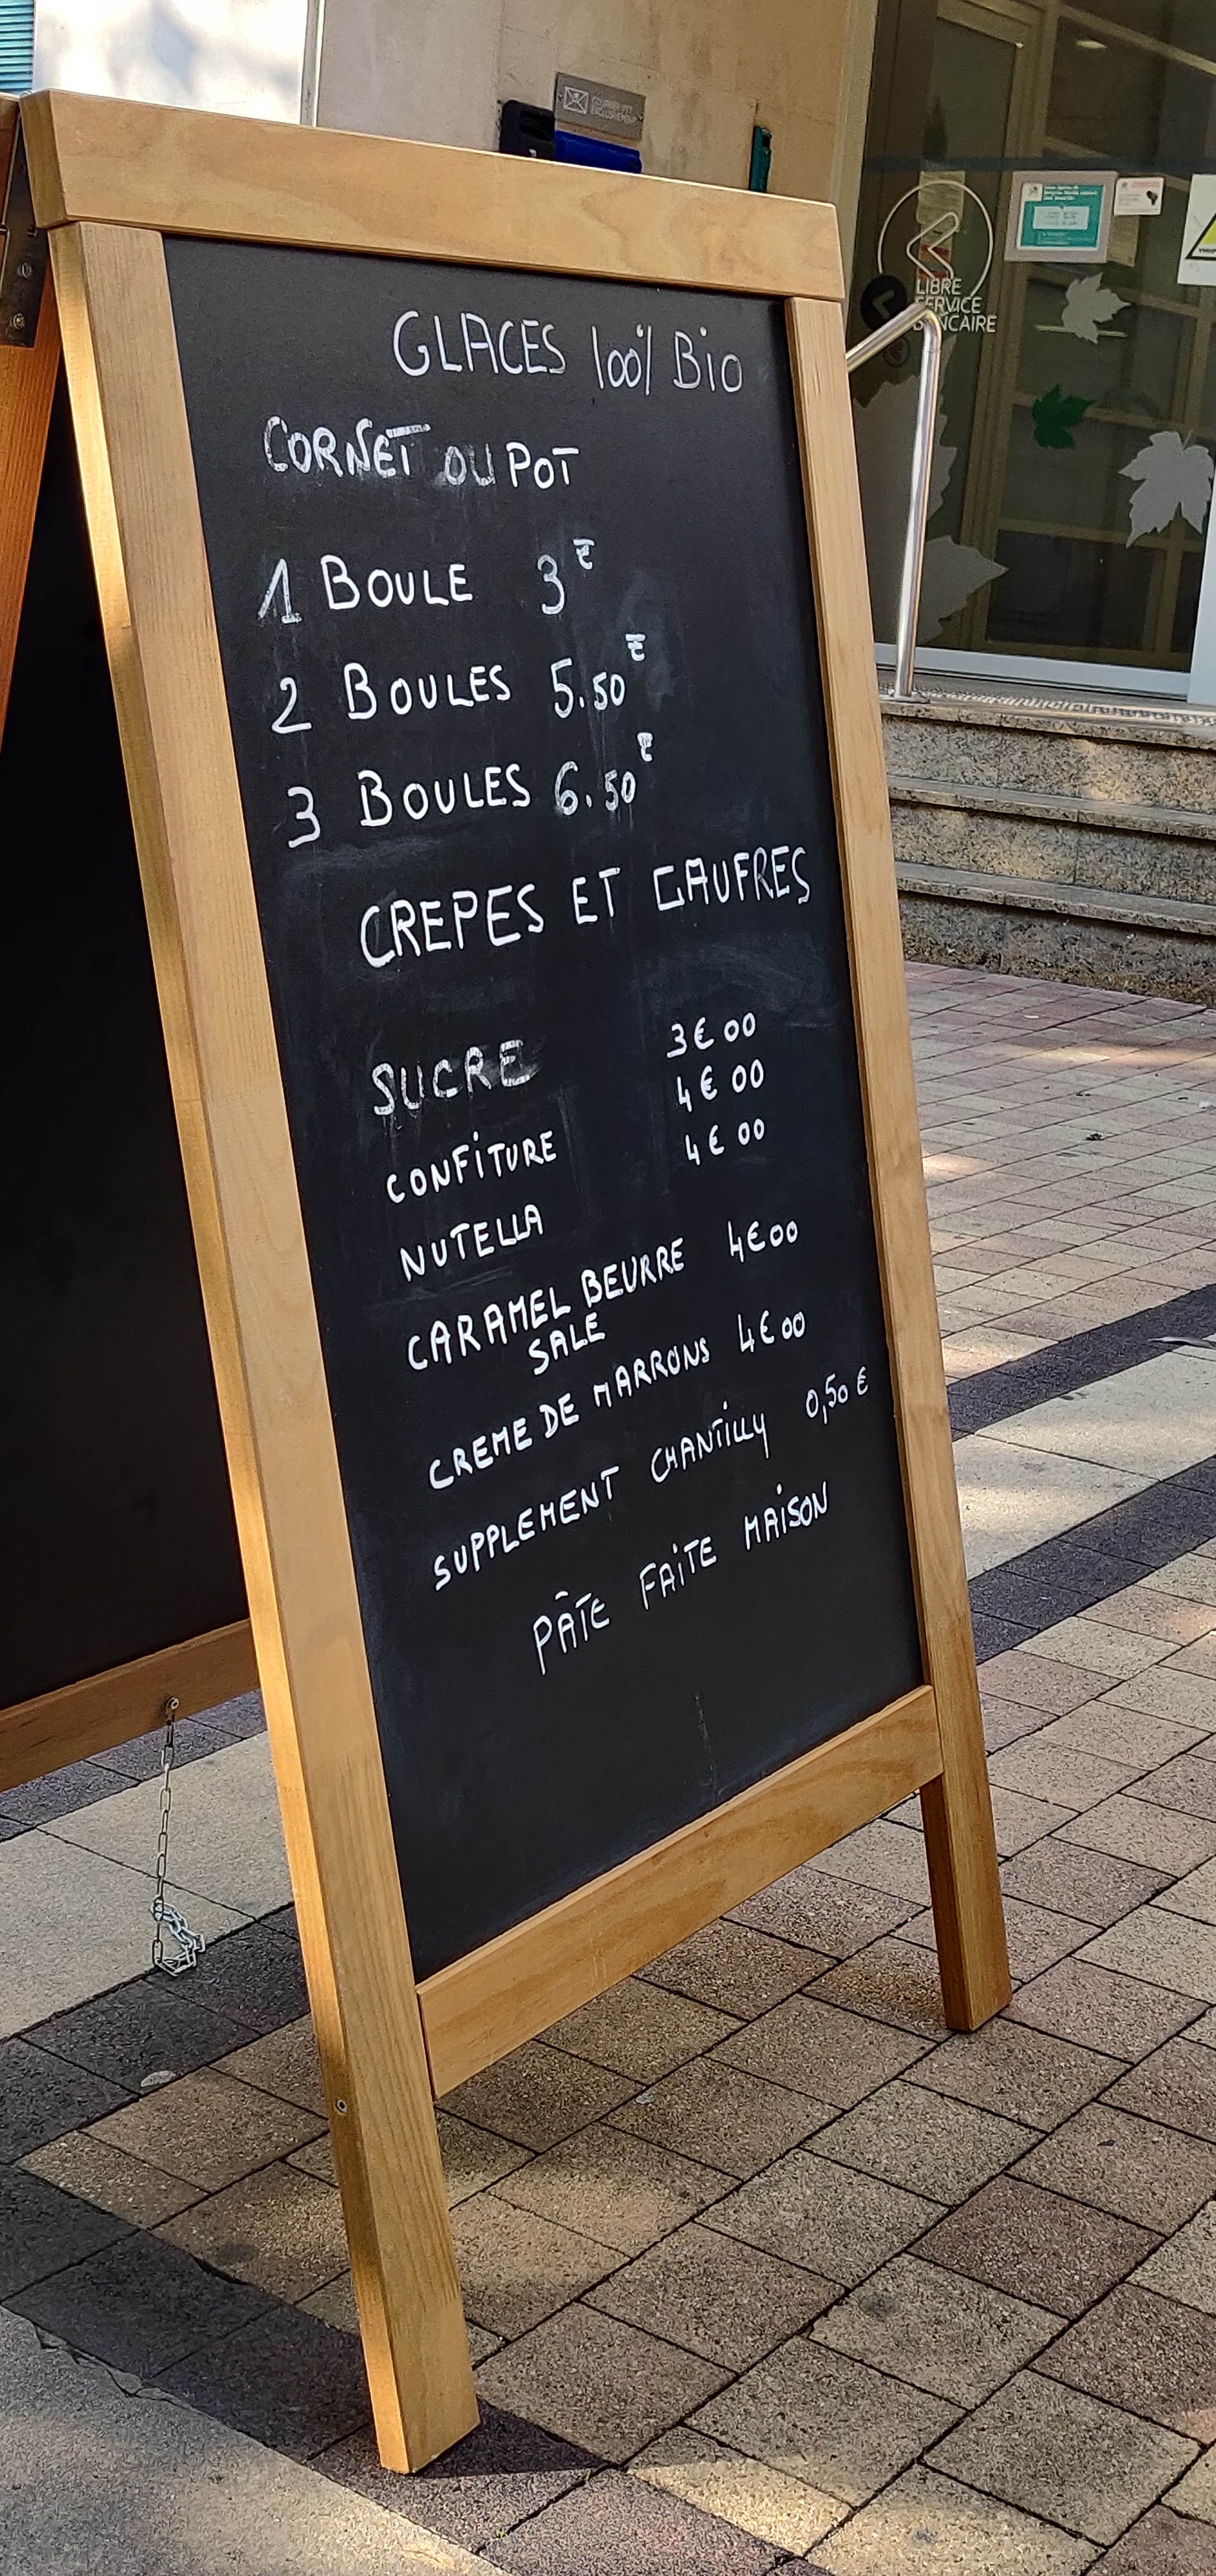 COURRIER PTT
EXCLUSIVEMENT
LIBRE
SERVICE
BANCAIRE
GLACES 100% Bio
CORNET OU POT
1 BOULE 3€
2 BOULES 5.50€
3 BOULES 6.50€
CREPES ET GAUFRES
SUCRE 3€00
CONFITURE 4€00
NUTELLA 4€00
CARAMEL BEURRE 4€00
SALE
CREME DE MARRONS 4€00
SUPPLEMENT CHANTILLY 0,50€
PÂTE FAITE MAISON